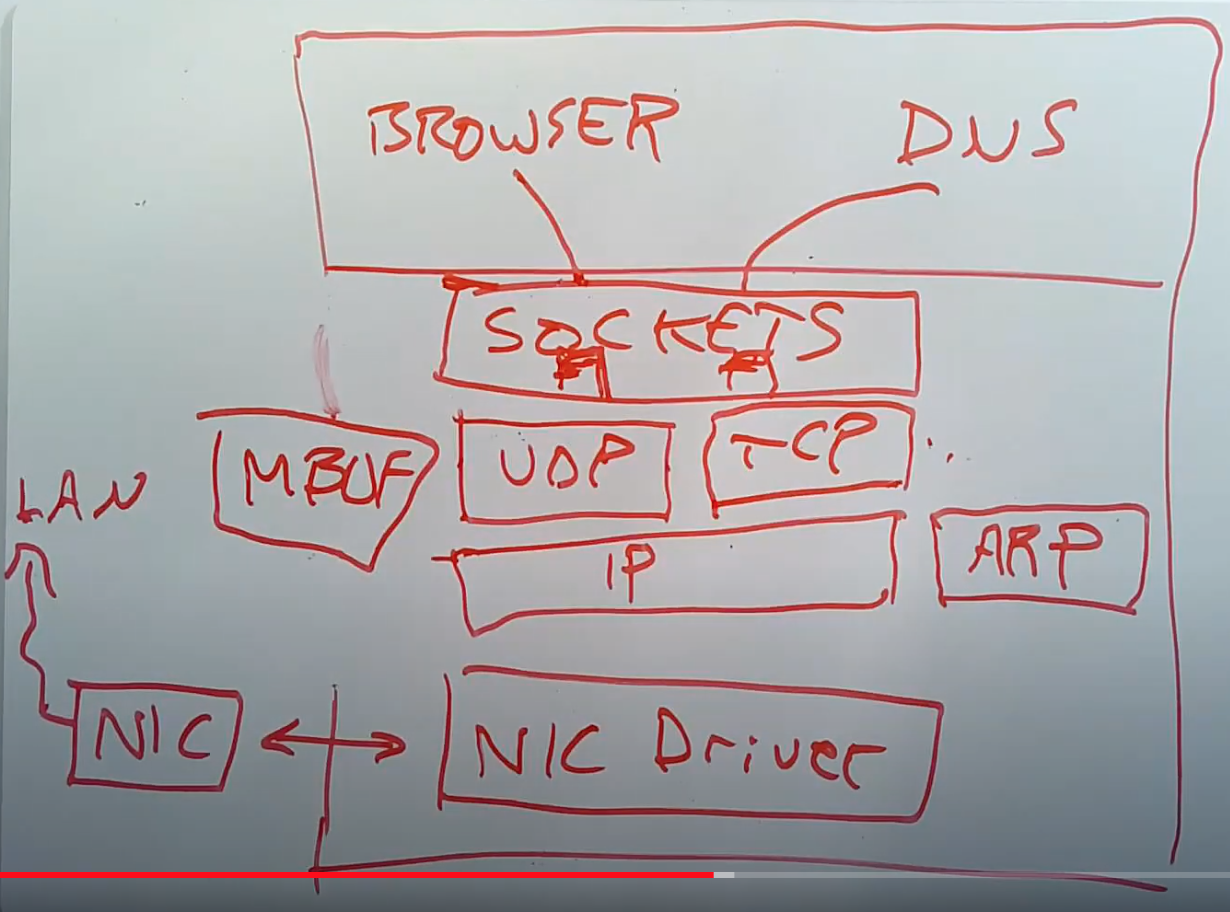 BROWSER DNS
SOCKETS
MBUF UDP TCP
LAN
IP ARP
NIC NIC Driver